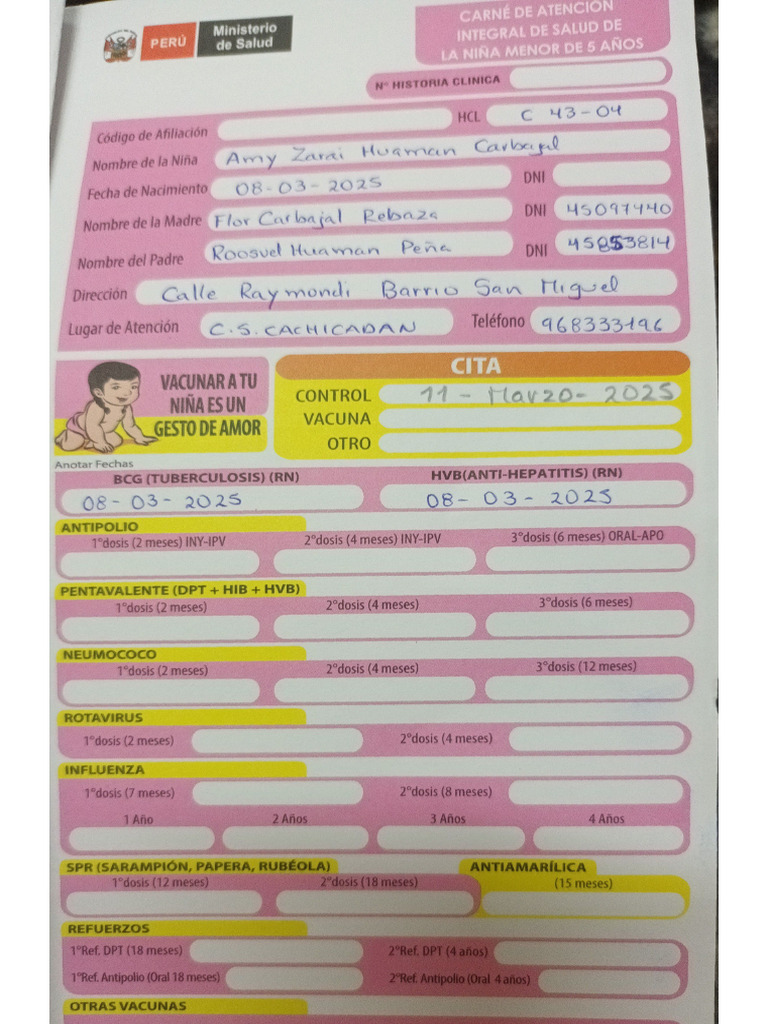 PERÚ Ministerio de Salud
CARNÉ DE ATENCIÓN
INTEGRAL DE SALUD DE
LA NIÑA MENOR DE 5 AÑOS
N° HISTORIA CLINICA
Código de Afiliación HCL C 43-04
Nombre de la Niña Amy Zarai Huaman Carbajal
Fecha de Nacimiento 08-03-2025 DNI
Nombre de la Madre Flor Carbajal Rebaza DNI 45097440
Nombre del Padre Roosvel Huaman Peña DNI 45853814
Dirección Calle Raymondi Barrio San Miguel
Lugar de Atención C.S. CACHICADAN Teléfono 968333196
VACUNAR A TU
NIÑA ES UN
GESTO DE AMOR
CITA
CONTROL 11 - Marzo - 2025
VACUNA
OTRO
Anotar Fechas
BCG (TUBERCULOSIS) (RN) HVB(ANTI-HEPATITIS) (RN)
08-03-2025 08-03-2025
ANTIPOLIO
1°dosis (2 meses) INY-IPV 2°dosis (4 meses) INY-IPV 3°dosis (6 meses) ORAL-APO
PENTAVALENTE (DPT + HIB + HVB)
1°dosis (2 meses) 2°dosis (4 meses) 3°dosis (6 meses)
NEUMOCOCO
1°dosis (2 meses) 2°dosis (4 meses) 3°dosis (12 meses)
ROTAVIRUS
1°dosis (2 meses) 2°dosis (4 meses)
INFLUENZA
1°dosis (7 meses) 2°dosis (8 meses)
1 Año 2 Años 3 Años 4 Años
SPR (SARAMPIÓN, PAPERA, RUBÉOLA) ANTIAMARÍLICA
1°dosis (12 meses) 2°dosis (18 meses) (15 meses)
REFUERZOS
1°Ref. DPT (18 meses) 2°Ref. DPT (4 años)
1°Ref. Antipolio (Oral 18 meses) 2°Ref. Antipolio (Oral 4 años)
OTRAS VACUNAS